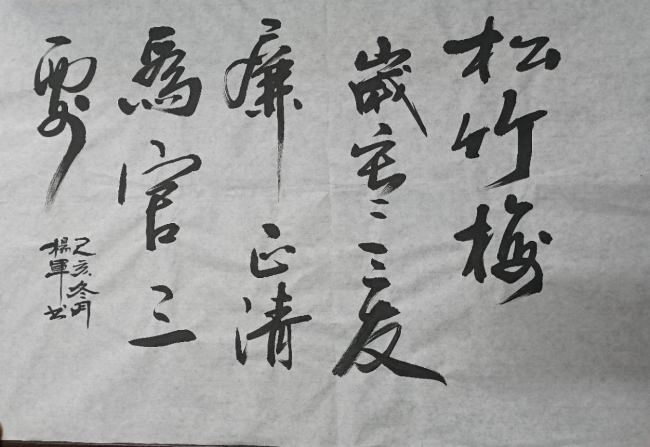 松竹梅
歲寒三友
廉正清
為官三
要
己亥冬月
楊軍书